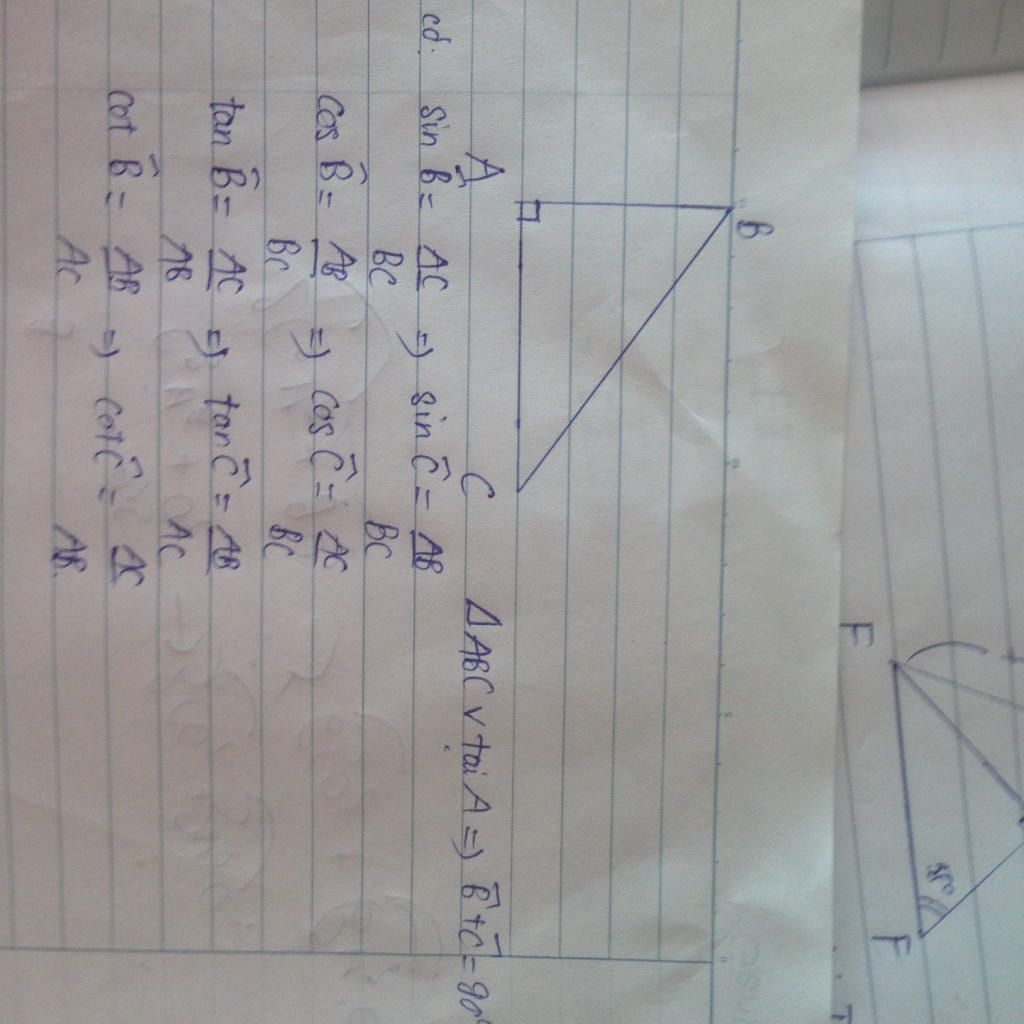 B
A
C
ΔABC v tại A => B̂ + Ĉ = 90°
có: sin B̂ = AC/BC => sin Ĉ = AB/BC
cos B̂ = AB/BC => cos Ĉ = AC/BC
tan B̂ = AC/AB => tan Ĉ = AB/AC
cot B̂ = AB/AC => cot Ĉ = AC/AB.
F
F